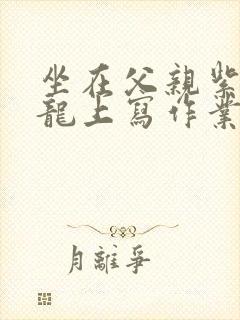 坐在父親紫
龍上寫作業
月離爭